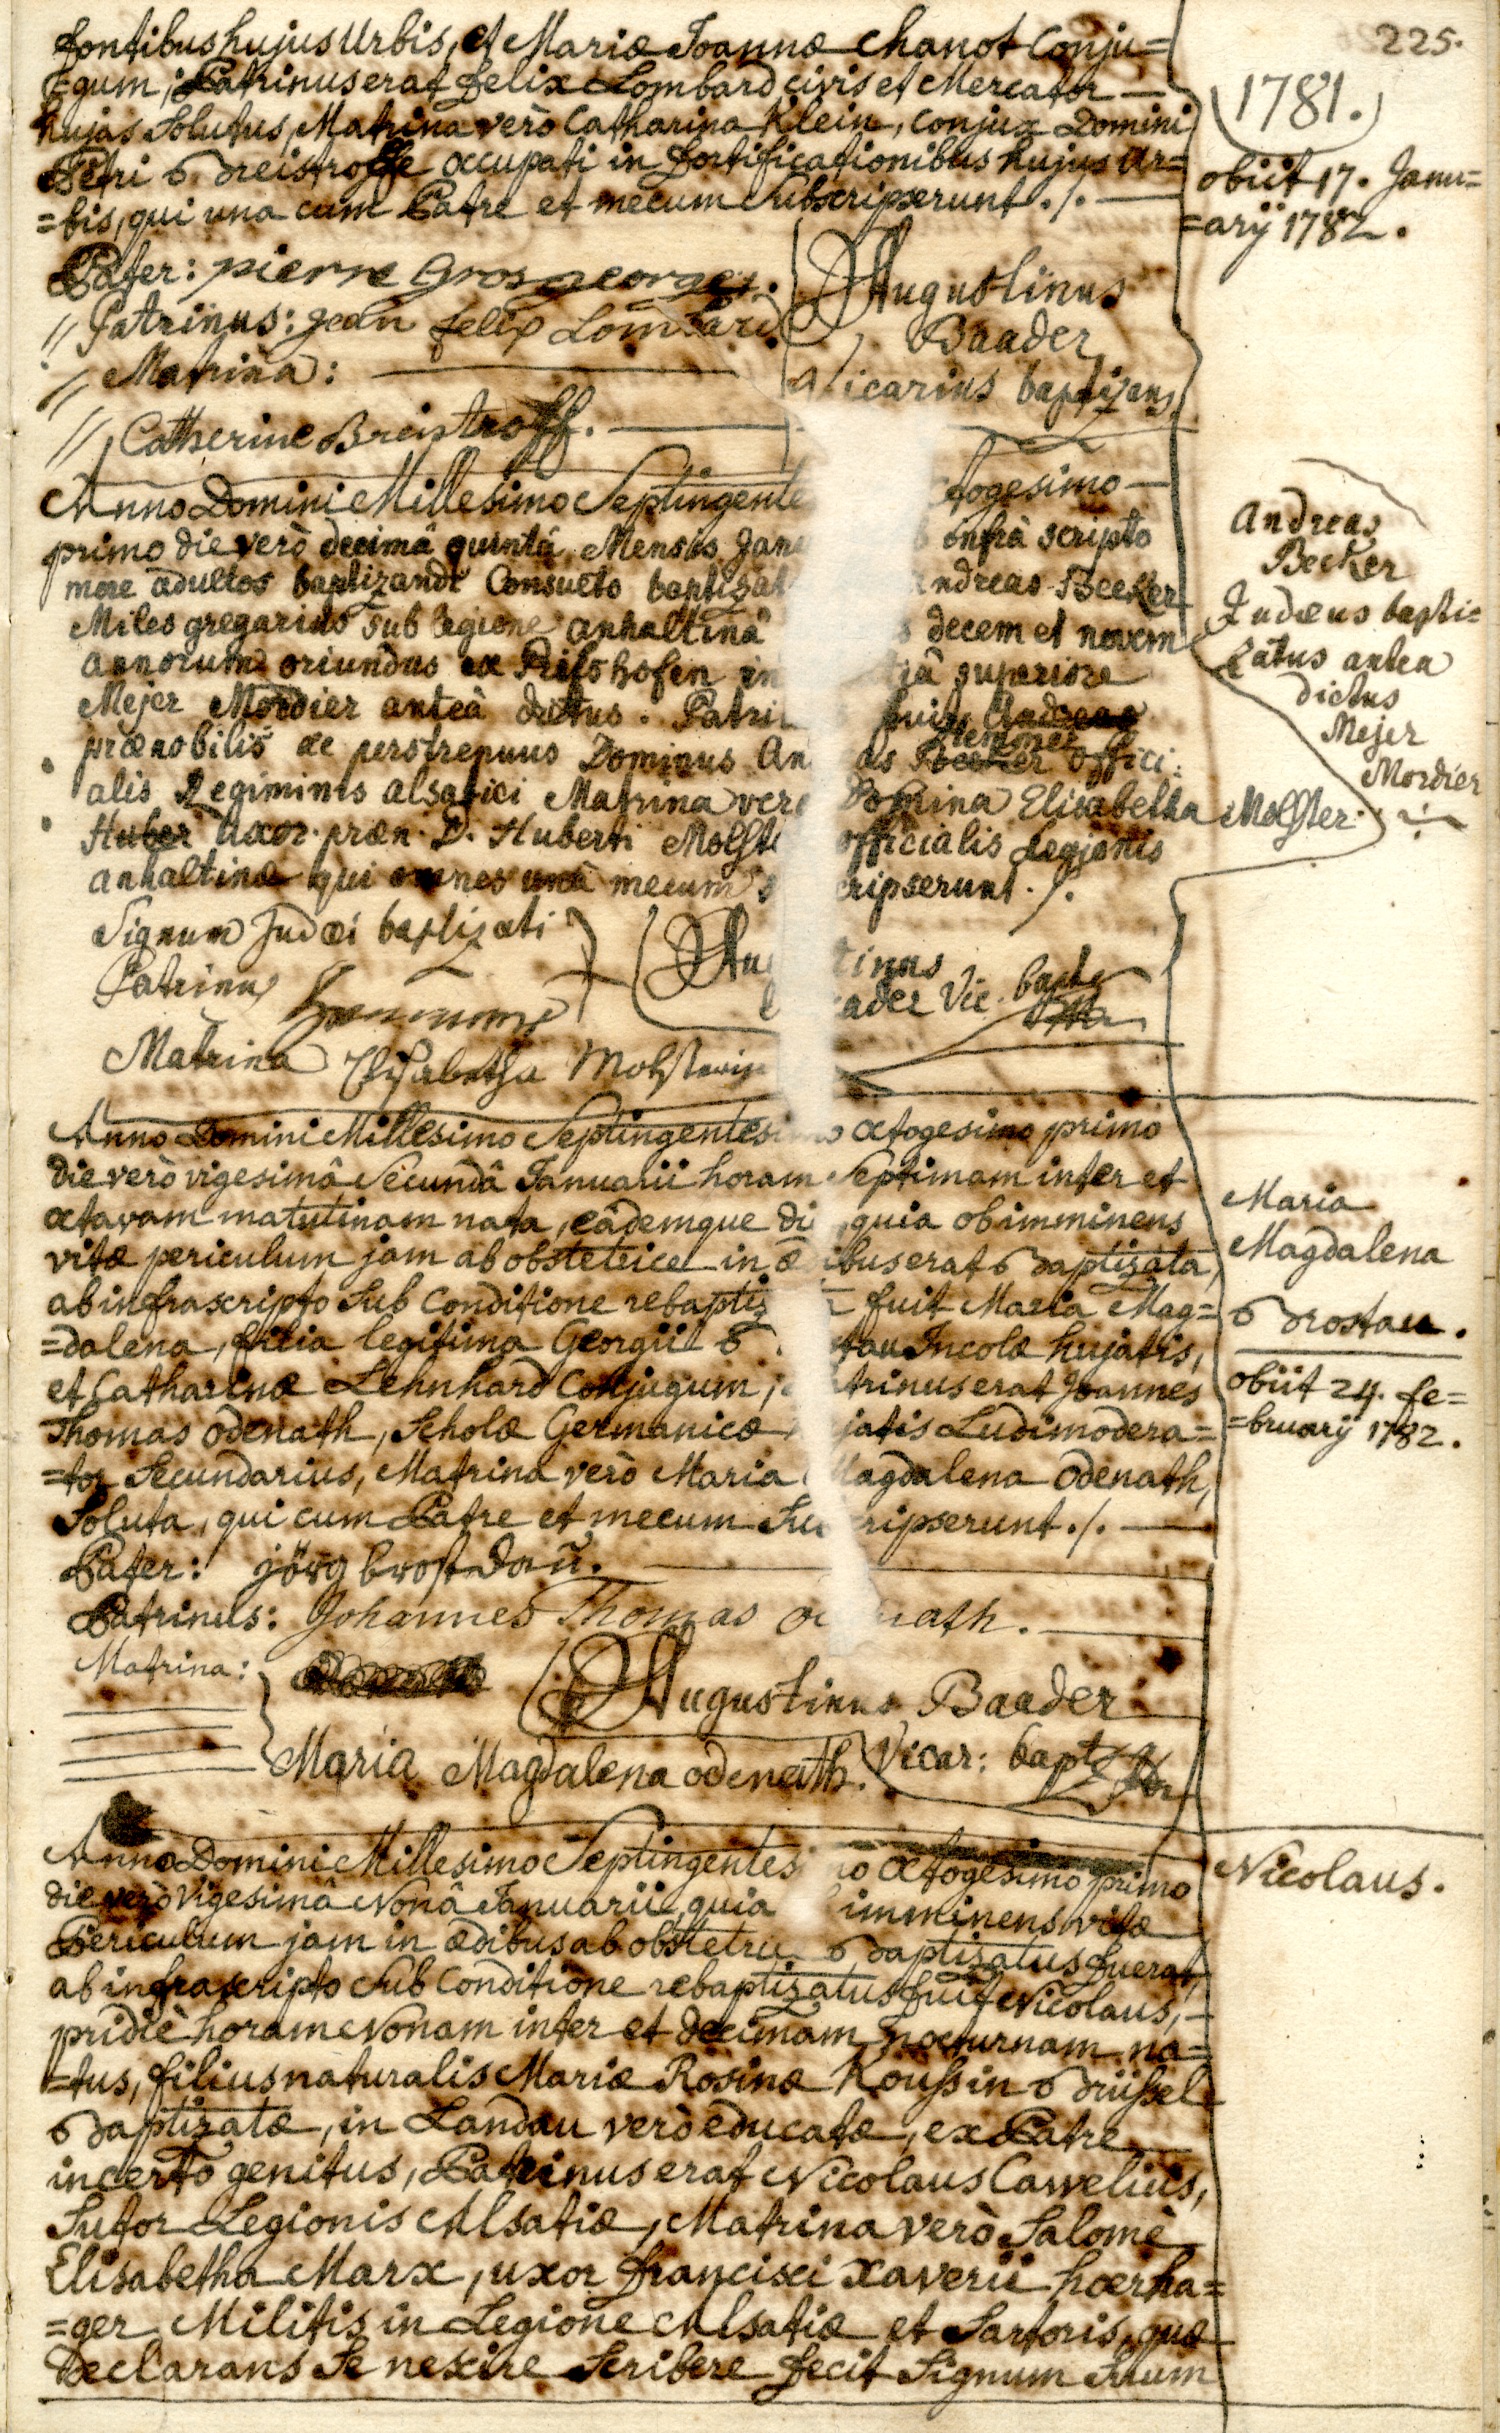 225.
1781.
fontibus hujus Urbis, et Mariæ Joannæ Chanot Conju=
=gum; Patrinus erat Felix Lombard civis et Mercator —
hujas Solutus, Matrina verò Catharina Klein, conjux Domini
Petri Breistroffe occupati in fortificationibus hujus Ur=
=bis, qui una cum Patre et mecum Subscripserunt ./. —
obiit 17. Janu=
=arÿ 1782.
Pater: pierre Grosgeorge.
// Patrinus: jean felix Lombard
// Matrina: —
// Catherine Breistroff. —
Augustinus
Baader
Vicarius baptizans
Anno Domini Millesimo Septingente ctogesimo —
primo die verò decimâ quintâ Mensis Jan infrà scripto
more adultos baptizandi Consueto baptizat ndreas Becker
Miles gregarius sub legione anhaltinâ decem et novem
annorum oriundus ex in superiore
Mejer Mordier anteà dictus. Patri fuit Andreas
prænobilis ac perstrenuus Dominus An as Becker Hemmer offici:
alis Regiminis alsatici Matrina vero Domina Elisabetha Molster
Huber Uxor præn. D. Huberti Molst officialis Legionis
anhaltinæ qui omnes unà mecum s cripserunt ./.
Andreas
Becker
Judæus bapti=
zatus antea
dictus
Mejer
Mordier
Signum Judæi baptizati
Patrinus
Matrina Elisabetha Molsterin
Aug tinus
ader Vic. bapt
Anno Domini Millesimo Septingentesimo octogesimo primo
die verò vigesimâ Secundâ Januarii horam Septimam inter et
octavam matutinam nata, eâdemque di quia ob imminens
vitæ periculum jam ab obstetrice in æ ibus erat baptizata,
ab infrascripto Sub Conditione rebaptiz fuit Maria Mag=
=dalena, filia legitima Georgii B tau Incolæ hujatis,
et Catharinæ Lehnhard Conjugum; trinus erat Joannes
Thomas Odenath, Scholæ Germanicæ jatis Ludimodera=
=tor Secundarius, Matrina verò Maria Magdalena Odenath,
Soluta, qui cum Patre et mecum Su cripserunt ./. —
Maria
Magdalena
Brostau.
obiit 24. Fe=
=bruarÿ 1782.
Pater: jörg brostdau.
Patrinus: Johannes Thomas o nath.
Matrina:
Maria Magdalena odenath.
Augustinus Baader
Vicar: bapt
Anno Domini Millesimo Septingentesi mo Octogesimo primo
die verò Vigesimâ Nonâ Januarii, quia imminens vitæ
Periculum jam in ædibus ab obstetri baptizatus fuerat,
ab infrascripto Sub Conditione rebaptizatus fuit Nicolaus, —
pridiè horam Nonam inter et decimam nocturnam na=
=tus, filius naturalis Mariæ Rosinæ Koussin Brüssel
baptizatæ, in Landau verò educatæ, ex Patre
incerto genitus, Patrinus erat Nicolaus Cawelius,
Sutor Legionis Alsatiæ, Matrina verò Salomè
Elisabetha Marx, uxor Francisci Xaverii hoerha=
=ger Militis in Legione Alsatiæ et Sartoris, quæ
Declarans Se nescire Scribere fecit Signum Suum
Nicolaus.